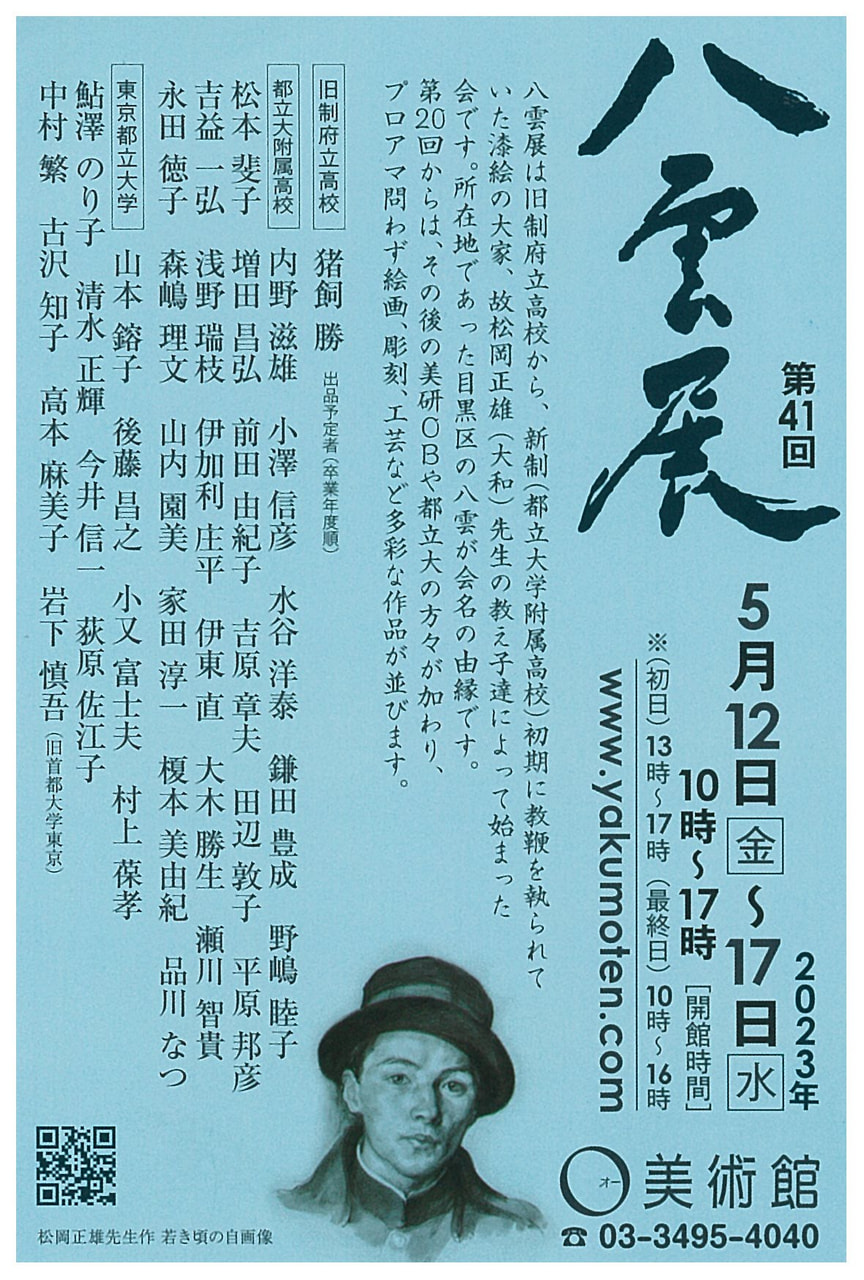 八雲展
第41回
2023年
5月12日金〜17日水
10時〜17時[開館時間]
※(初日)13時〜17時(最終日)10時〜16時
www.yakumoten.com
O オー 美術館
☎ 03-3495-4040
八雲展は旧制府立高校から、新制(都立大学附属高校)初期に教鞭を執られて
いた漆絵の大家、故松岡正雄(大和)先生の教え子達によって始まった
会です。所在地であった目黒区の八雲が会名の由縁です。
第20回からは、その後の美研OBや都立大の方々が加わり、
プロアマ問わず絵画、彫刻、工芸など多彩な作品が並びます。
旧制府立高校 猪飼 勝 出品予定者(卒業年度順)
都立大附属高校 内野 滋雄 小澤 信彦 水谷 洋泰 鎌田 豊成 野嶋 睦子
松本 斐子 増田 昌弘 前田 由紀子 吉原 章夫 田辺 敦子 平原 邦彦
吉益 一弘 浅野 瑞枝 伊加利 庄平 伊東 直 大木 勝生 瀬川 智貴
永田 徳子 森嶋 理文 山内 園美 家田 淳一 榎本 美由紀 品川 なつ
東京都立大学 山本 鎔子 後藤 昌之 小又 富士夫 村上 葆孝
鮎澤 のり子 清水 正輝 今井 信一 荻原 佐江子
中村 繁 古沢 知子 高本 麻美子 岩下 慎吾(旧首都大学東京)
松岡正雄先生作 若き頃の自画像